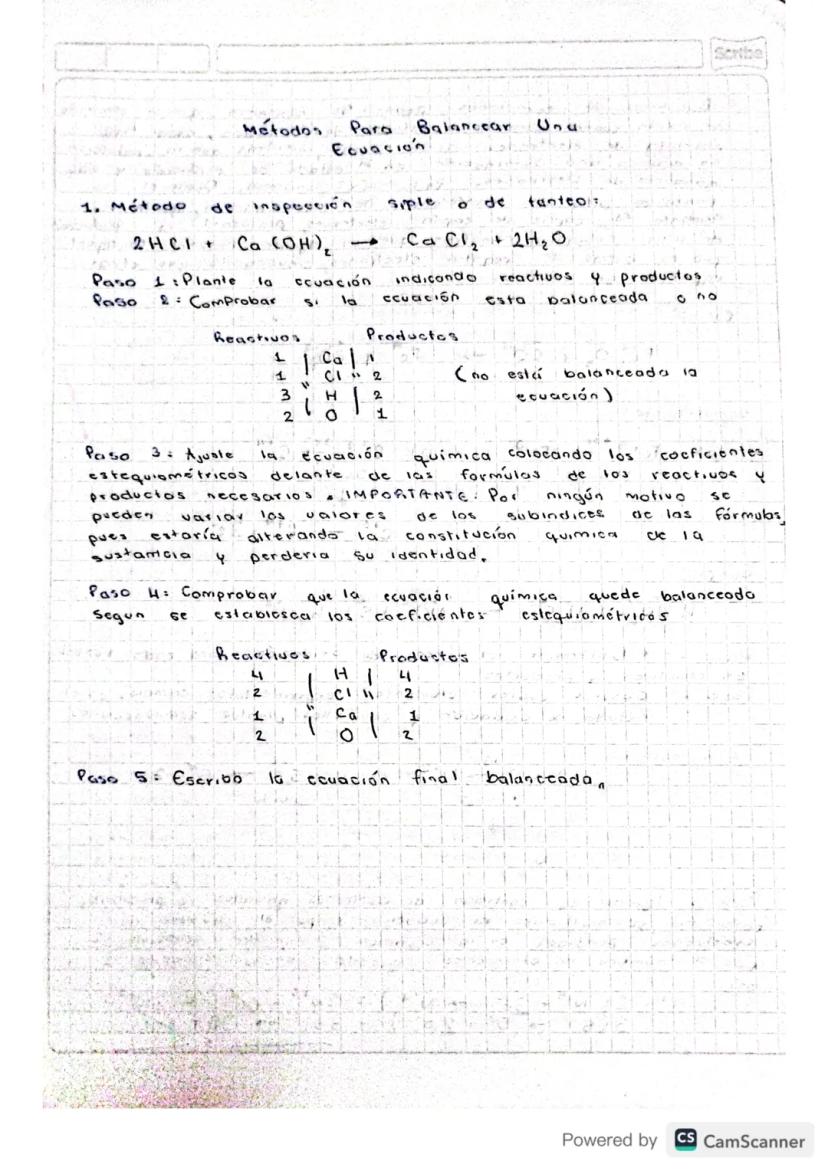 Scribe
Métodos Para Balancear Una
Ecuación
1. Método de inspección siple o de tanteo:
2HCl + Ca(OH)₂ → CaCl₂ + 2H₂O
Paso 1: Plante la ecuación indicando reactivos y productos
Paso 2: Comprobar si la ecuación esta balanceada o no
Reactivos Productos
1 | Ca | 1
1 Cl " 2 (no está balanceada la
3 " H | 2 ecuación)
2 O 1
Paso 3: Ajuste la ecuación química colocando los coeficientes
estequiométricos delante de las formulas de los reactivos y
productos necesarios. IMPORTANTE: Por ningún motivo se
pueden variar los valores de los subindices de las fórmulas,
pues estaría alterando la constitución química de la
sustamcia y perderia su identidad.
Paso 4: Comprobar que la ecuación química quede balanceada
Segun se establesca los coeficientes estequiométricos
Reactivos Productos
4 | H | 4
2 | Cl " 2
1 " Ca | 1
2 | O | 2
Paso 5: Escribb la ecuación final balanceada
Powered by CS CamScanner